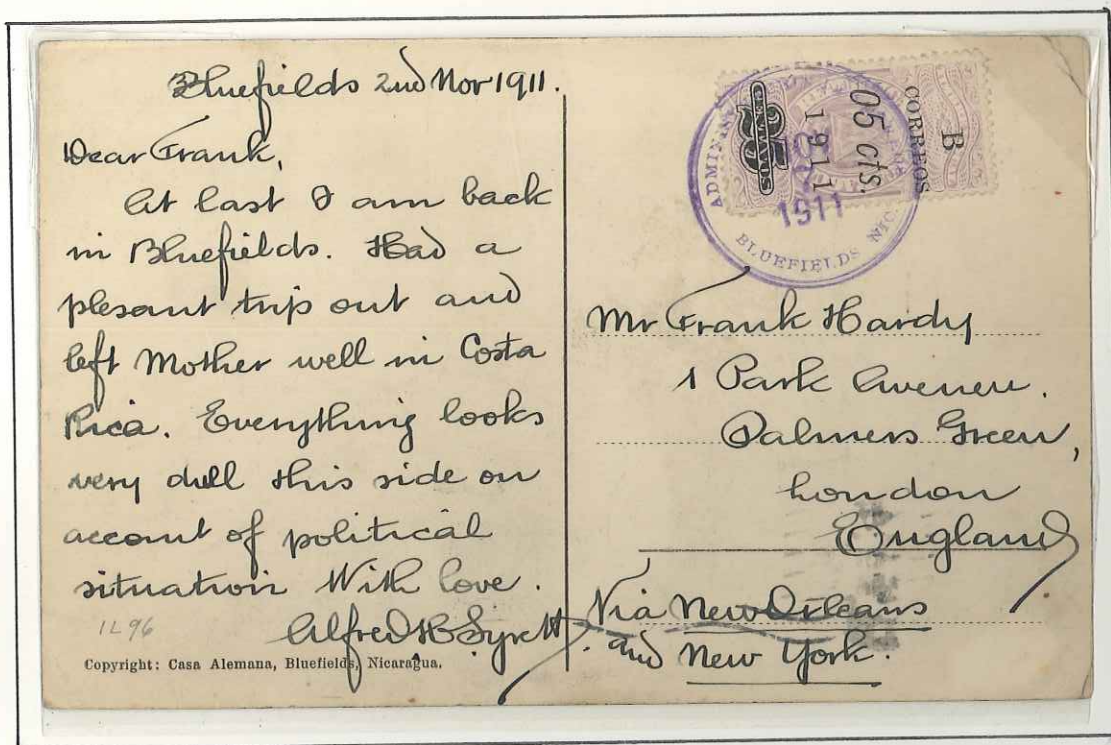 Bluefields 2nd Nov 1911.
Dear Frank,
At last I am back
in Bluefields. Had a
plesant trip out and
left Mother well in Costa
Rica. Everything looks
very dull this side on
account of political
situation With love.
Alfred H Syrett.
1L96
Copyright: Casa Alemana, Bluefields, Nicaragua.
B
CORREOS
05 cts.
1911
CENTAVOS
1911
BLUEFIELDS NIC.
Mr Frank Hardy
1 Park Avenue.
Palmers Green,
London
England
Via New Orleans
and New York.